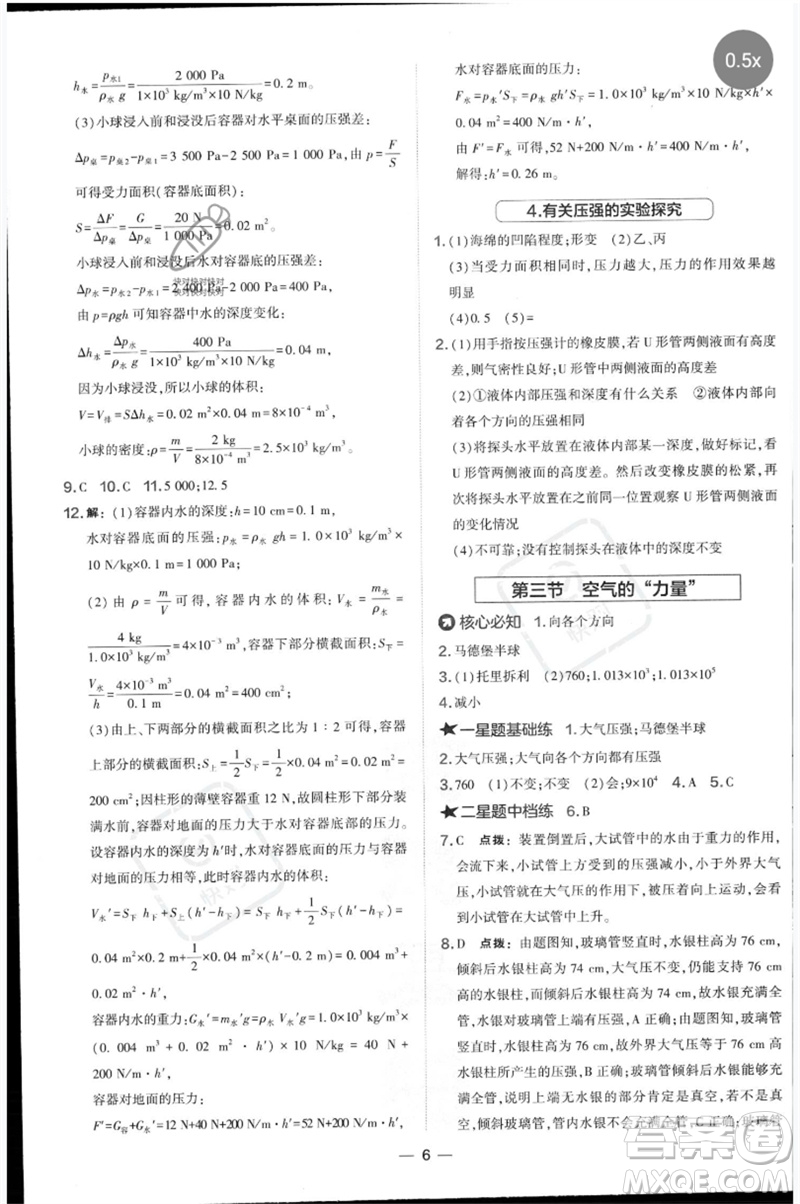 h水=p水1/ρ水 g=2 000 Pa/1×10³ kg/m³×10 N/kg=0.2 m。
(3)小球浸入前和浸没后容器对水平桌面的压强差:
Δp桌=p桌2-p桌1=3 500 Pa-2 500 Pa=1 000 Pa,由 p=F/S
可得受力面积(容器底面积):
S=ΔF/Δp桌=G/Δp桌=20 N/1 000 Pa=0.02 m²。
小球浸入前和浸没后水对容器底的压强差:
Δp水=p水2-p水1=2 400 Pa-2 000 Pa=400 Pa,
由 p=ρgh 可知容器中水的深度变化:
Δh水=Δp水/ρ水 g=400 Pa/1×10³ kg/m³×10 N/kg=0.04 m,
因为小球浸没,所以小球的体积:
V=V排=SΔh水=0.02 m²×0.04 m=8×10⁻⁴ m³,
小球的密度:ρ=m/V=2 kg/8×10⁻⁴ m³=2.5×10³ kg/m³
9.C 10.C 11.5 000;12.5
12.解:(1)容器内水的深度:h=10 cm=0.1 m,
水对容器底面的压强:p水=ρ水 gh=1.0×10³ kg/m³
×10 N/kg×0.1 m=1 000 Pa;
(2)由 ρ=m/V可得,容器内水的体积:V水=m水/ρ水=
4 kg/1.0×10³ kg/m³=4×10⁻³ m³,容器下部分横截面积:S下=
V水/h=4×10⁻³ m³/0.1 m=0.04 m²=400 cm²;
(3)由上、下两部分的横截面积之比为 1∶2 可得,容器
上部分的横截面积:S上=1/2S下=1/2×0.04 m²=0.02 m²=
200 cm²;因柱形的薄壁容器重 12 N,故圆柱形容器下部分
装满水前,容器对地面的压力大于水对容器底部的压力。
设容器内水的深度为 h′时,水对容器底面的压力与容器
对地面的压力相等,此时容器内水的体积:
V水′=S下 h下+S上(h′-h下)=S下 h下+1/2S下(h′-h下)=
0.04 m²×0.1 m+1/2×0.04 m²×(h′-0.1 m)=0.002 m³+
0.02 m²·h′,
容器内水的重力:G水′=m水′g=ρ水 V水′g=1.0×10³ kg/m³×
(0.002 m³+0.02 m²·h′)×10 N/kg=20 N+200 N/m·h′,
容器对地面的压力:
F′=G容+G水′=12 N+40 N+200 N/m·h′=52 N+200 N/m·h′,
水对容器底面的压力:
F水=p水′S下=ρ水 gh′S下=1.0×10³ kg/m³×10 N/kg×h′×
0.04 m²=400 N/m·h′,
由 F′=F水可得,52 N+200 N/m·h′=400 N/m·h′,
解得:h′=0.26 m。
0.5x
4.有关压强的实验探究
1.(1)海绵的凹陷程度;形变 (2)乙、丙
(3)当受力面积相同时,压力越大,压力的作用效果越
明显
(4)0.5 (5)=
2.(1)用手指按压强计的橡皮膜,若 U 形管两侧液面有高度
差,则气密性良好;U 形管中两侧液面的高度差
(2)①液体内部压强和深度有什么关系 ②液体内部
向各个方向的压强相同
(3)将探头水平放置在液体内某一深度,做好标记,看
U 形管两侧液面高度差。然后改变橡皮膜的松紧,再
次将探头水平放置在同一位置观察 U 形管两侧液面
的变化情况
(4)不可靠;没有控制探头在液体中的深度不变
第三节 空气的“力量”
核心必知 1.向各个方向
2.马德堡半球
3.(1)托里拆利 (2)760;1.013×10⁵;1.013×10⁵
4.减小
一星题基础练 1.大气压强;马德堡半球
2.大气压强;大气压强
3.760 (1)不变;不变 (2)会;9×10⁴ 4.A 5.C
二星题中档练 6.B
7.C 点拨:装置倒置后,大试管中的水由于重力的作用,
会流下来,小试管上方的压强减小,小于外界大气
压,小试管就在大气压的作用下,被压着向上运动,会看到
小试管在大试管中上升。
8.D 点拨:由题图知,玻璃管竖直时,水银柱高为 76 cm,
倾斜后水银柱高为 76 cm,大气压不变,仍能支持 76 cm
高水银柱,而倾斜后水银柱高为 76 cm,故水银充满全
管,水银对玻璃管上端有压强,A 正确;由题图知,玻璃管
竖直时,水银柱高为 76 cm,所以大气压等于 76 cm 高水
银柱所产生的压强,B 正确;玻璃管竖直时水银能够充
满全管,倾斜后上端无水银的部分肯定是真空,
故倾斜玻璃管,管内水银能够充满全管,C 正确;玻璃管
6
答案圈
MXQE.COM